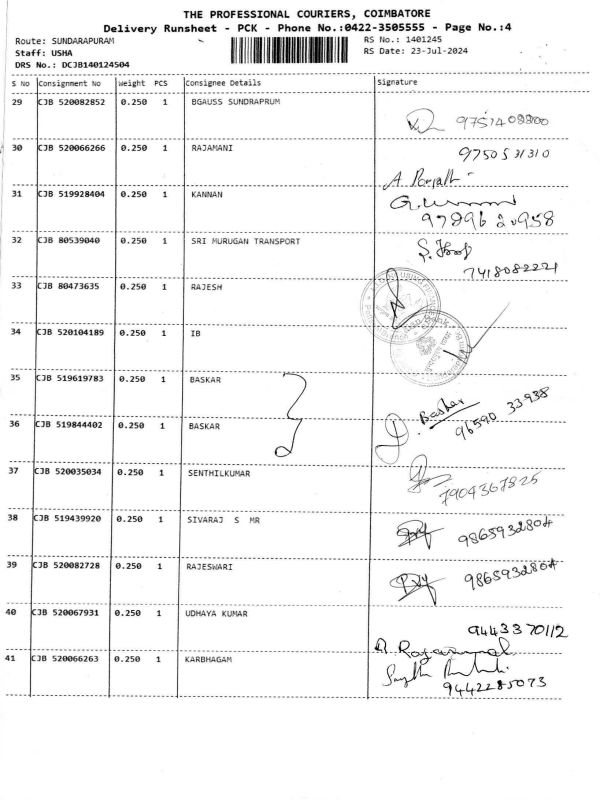 THE PROFESSIONAL COURIERS, COIMBATORE
Delivery Runsheet - PCK - Phone No.:0422-3505555 - Page No.:4
Route: SUNDARAPURAM RS No.: 1401245
Staff: USHA RS Date: 23-Jul-2024
DRS No.: DCJB140124504
S No Consignment No Weight PCS Consignee Details Signature
29 CJB 520082852 0.250 1 BGAUSS SUNDRAPRUM
9751408800
30 CJB 520066266 0.250 1 RAJAMANI
9750531310
A
31 CJB 519928404 0.250 1 KANNAN
32 CJB 80539040 0.250 1 SRI MURUGAN TRANSPORT
7418082221
33 CJB 80473635 0.250 1 RAJESH
34 CJB 520104189 0.250 1 IB
35 CJB 519619783 0.250 1 BASKAR
Baskar
36 CJB 519844402 0.250 1 BASKAR
96590 33938
37 CJB 520035034 0.250 1 SENTHILKUMAR
7904367825
38 CJB 519439920 0.250 1 SIVARAJ S MR
9865932804
39 CJB 520082728 0.250 1 RAJESWARI
9865932804
40 CJB 520067931 0.250 1 UDHAYA KUMAR
9443370112
41 CJB 520066263 0.250 1 KARBHAGAM
9442285073